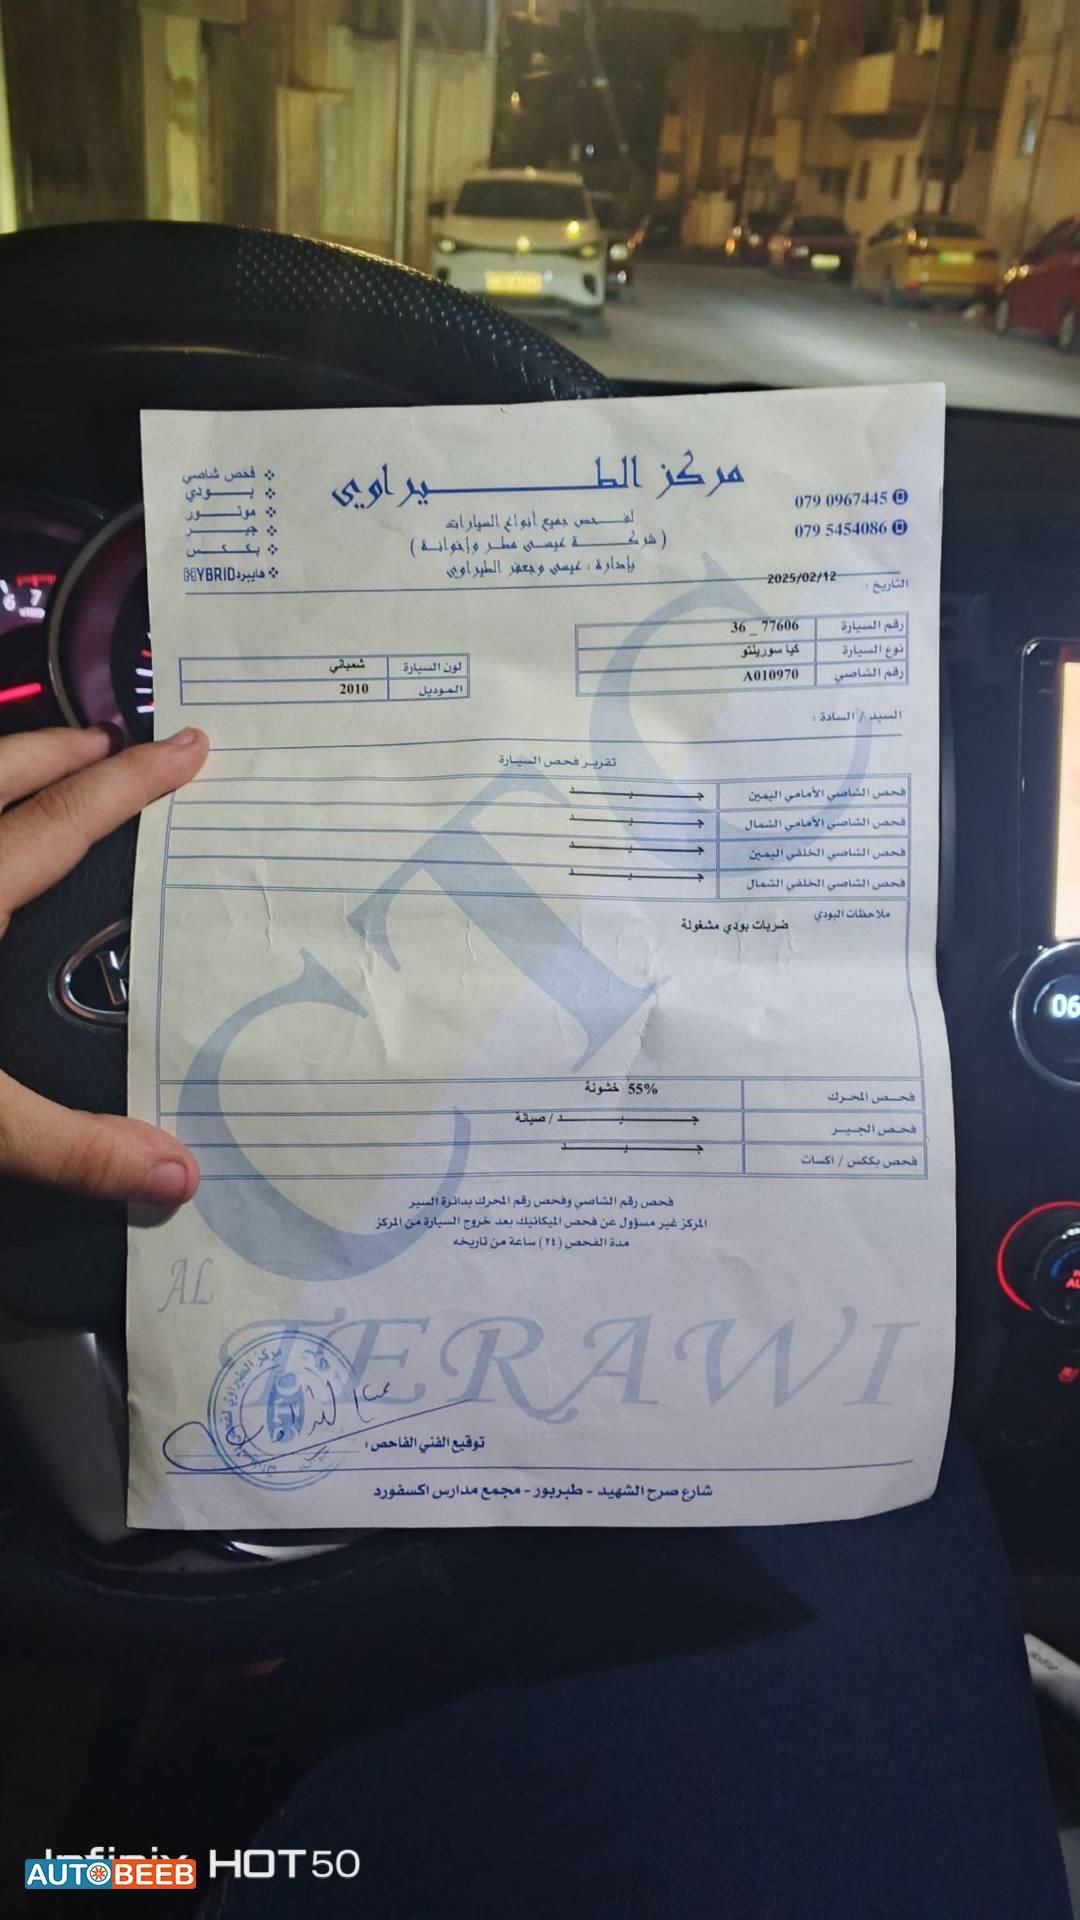 مركز الطـيراوي
لفـحص جميع أنواع السيارات
( شركـة عيسى مطر وإخوانة )
بإدارة : عيسى وجعفر الطيراوي
079 0967445
079 5454086
فحص شاصي
بـودي
موتـور
جيـر
بكـكس
هايبرد HYBRID
التاريخ : 2025/02/12
رقم السيارة 36 _ 77606
نوع السيارة كيا سورينتو
رقم الشاصي A010970
لون السيارة شمباني
الموديل 2010
السيد / السادة :
تقرير فحص السيارة
فحص الشاصي الأمامي اليمين جـيـد
فحص الشاصي الأمامي الشمال جـيـد
فحص الشاصي الخلفي اليمين جـيـد
فحص الشاصي الخلفي الشمال جـيـد
ملاحظات البودي
ضربات بودي مشغولة
فحـص المحرك 55% خشونة
فحـص الجيـر جـيـد / صيانة
فحص بككس / اكسات جـيـد
فحص رقم الشاصي وفحص رقم المحرك بدائرة السير
المركز غير مسؤول عن فحص الميكانيك بعد خروج السيارة من المركز
مدة الفحص (٢٤) ساعة من تاريخه
CTC
AL TERAWI
توقيع الفني الفاحص :
شارع صرح الشهيد - طبربور - مجمع مدارس اكسفورد
06
Infinix HOT 50
AUTOBEEB